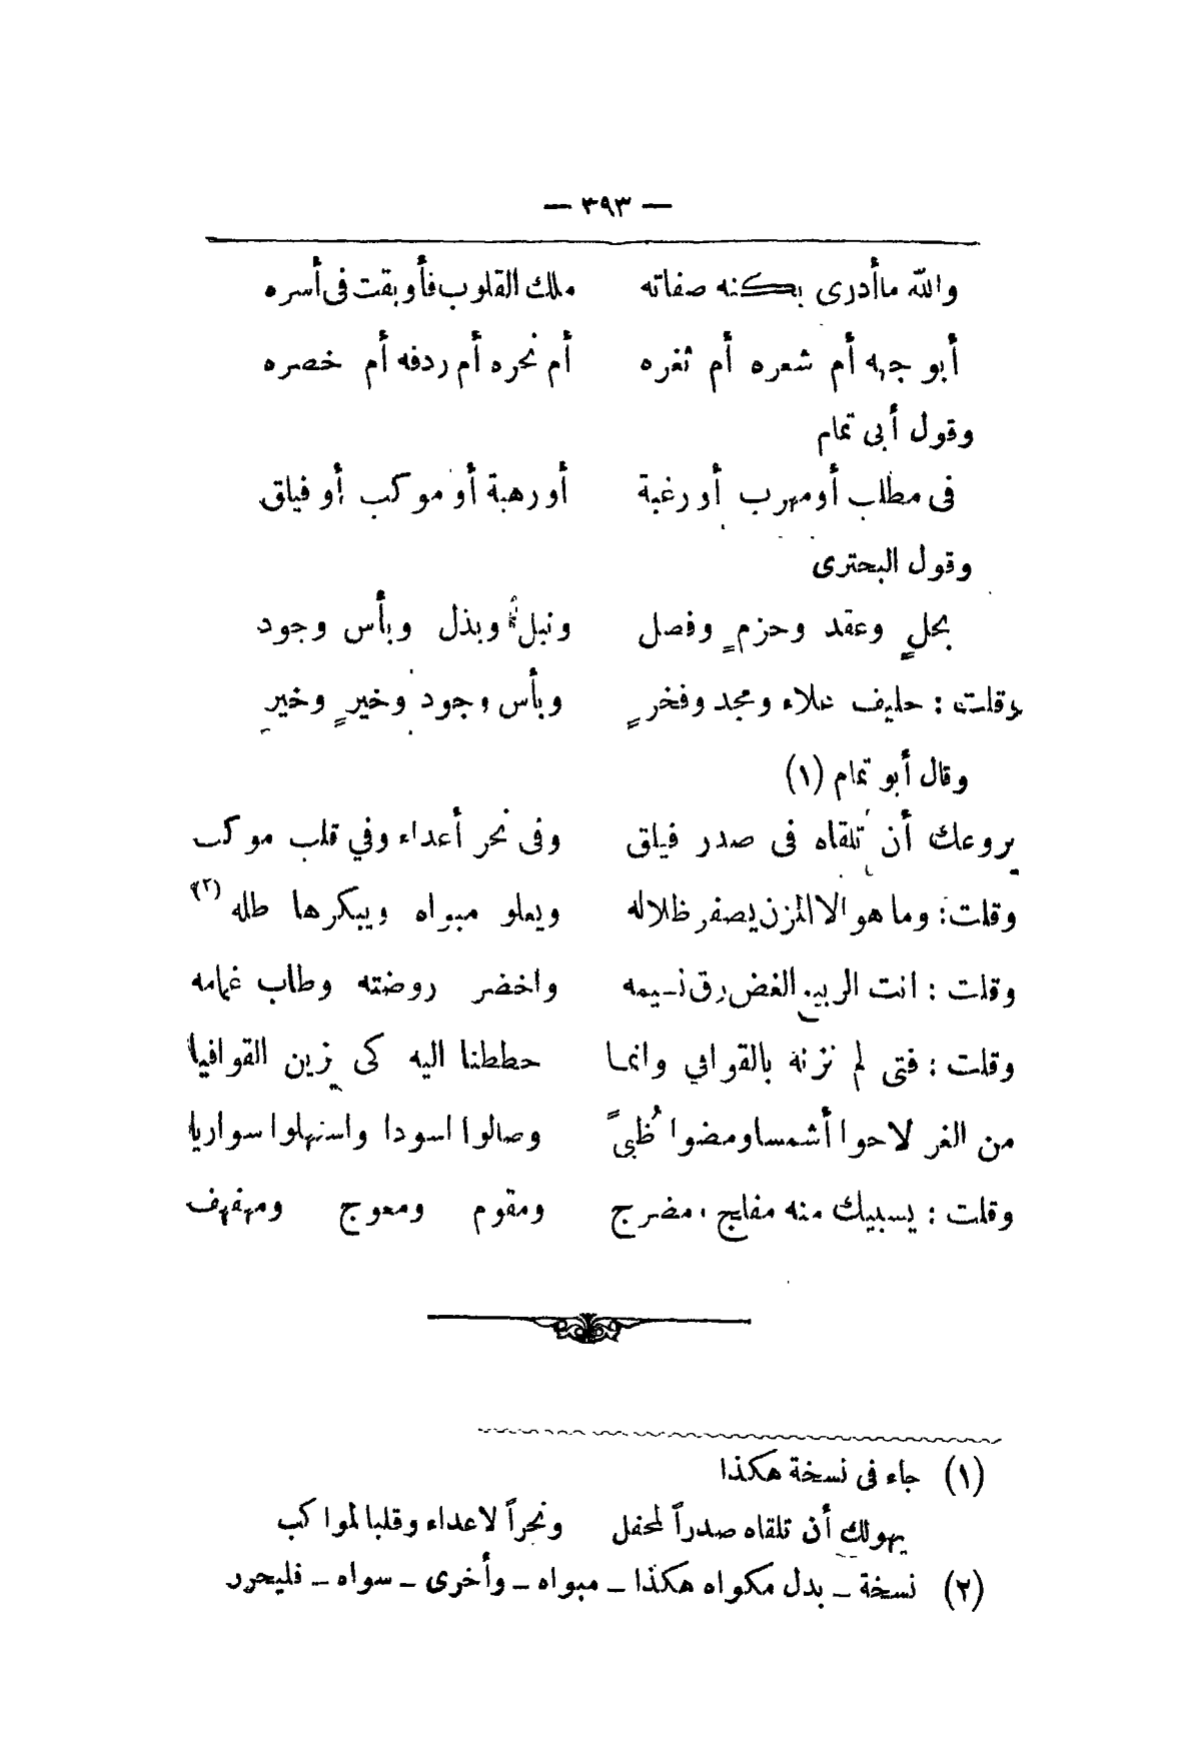 — ٣٩٣ —
والله ماأدرى بكنه صفاته ملك القلوب فأوبقت فى أسره
أبوجهه أم شعره أم ثغره أم نحره أم ردفه أم خصره
وقول أبى تمام
فى مطلب أومهرب أورغبة أورهبة أو موكب أو فيلق
وقول البحترى
بحلٍ وعقد وحزمٍ وفصل ونبل وبذل وبأس وجود
وقلت : حليف علاء ومجد وفخرٍ وبأس وجود وخيرٍ وخيرِ
وقال أبو تمام (١)
يروعك أن تلقاه فى صدر فيلق وفى نحر أعداء وفي قلب موكب
وقلت : وما هو الا المزن يصفر ظلاله ويعلو مبواه ويبكرها طله (٢)
وقلت : انت الربيع الغض رق نسيمه واخضر روضته وطاب غمامه
وقلت : فتى لم نزنه بالقوافي وانما حططنا اليه كى يزين القوافيا
من الغر لاحوا أشمسا ومضوا ظُبىً وصالوا اسودا واستهلوا سواريا
وقلت : يسبيك منه مفلج ، مضرج ومقوم ومعوج ومهفهف
(١) جاء فى نسخة هكذا
يهولك أن تلقاه صدراً لمحفل ونحراً لاعداء وقلبا لمواكب
(٢) نسخة – بدل مكواه هكذا – مبواه – وأخرى – سواه – فليحرر